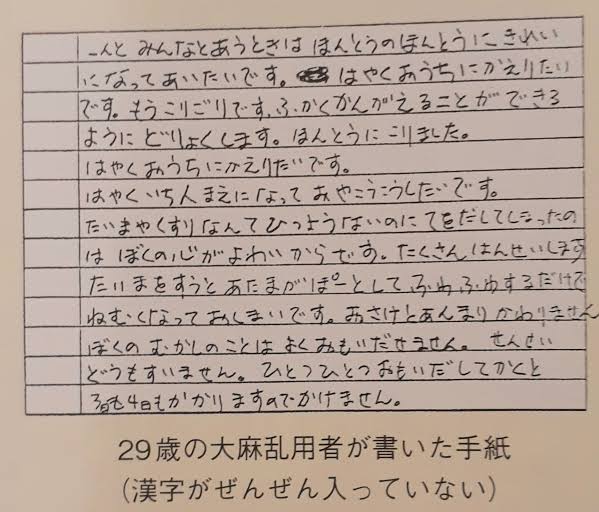 んと みんなとあうときは ほんとうのほんとうに きれい
になって あいたいです。 はやくおうちに かえりたい
です。もうこりごりです。ふかくかんがえることが できる
ように どりょくします。ほんとうに こりました。
はやくおうちにかえりたいです。
はやく いち人まえに なって おやこうこうしたいです。
たいまやくすりなんて ひつようないのに てをだしてしまったの
は ぼくの心がよわいからです。たくさん はんせいします
たいまをすうと あたまがぽーとして ふわふわするだけで
ねむくなって おしまいです。おさけとあんまり かわりません
ぼくの むかしのことは よくおもいだせません。 せんせい
どうもすいません。ひとつひとつ おもいだしてかくと
3日も4日もかかりますのでかけません。
29歳の大麻乱用者が書いた手紙
(漢字がぜんぜん入っていない)